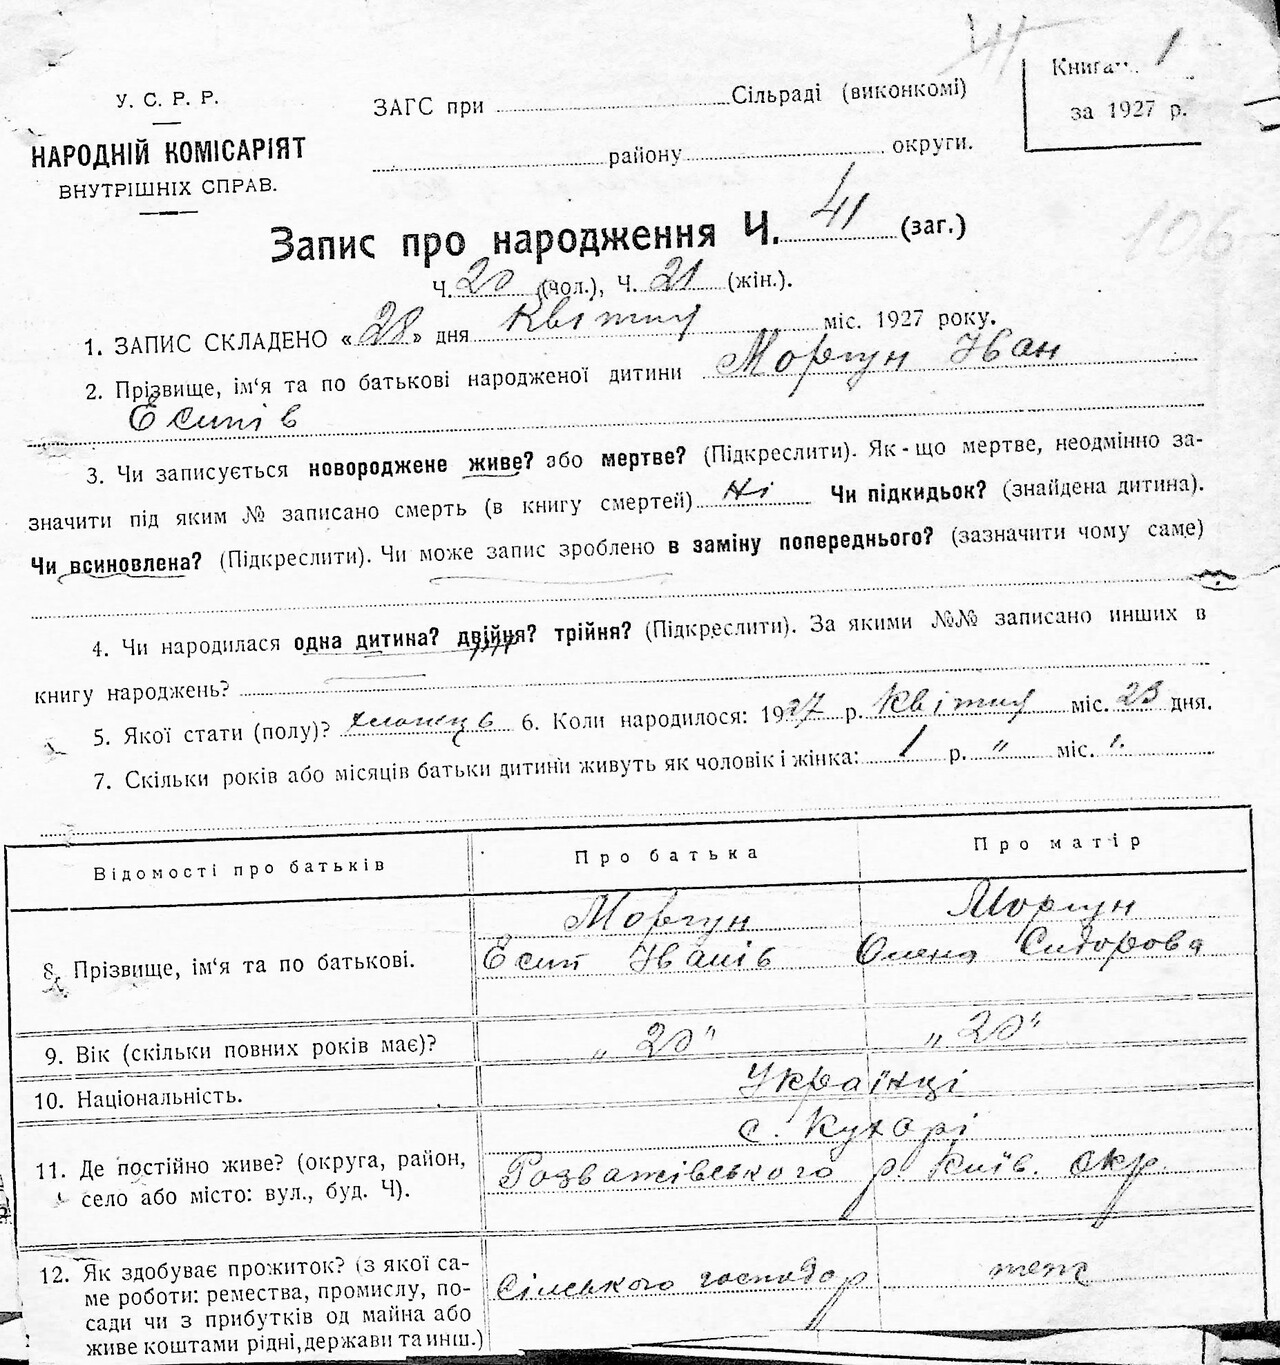 Книга 1
за 1927 р.
У. С. Р. Р.
НАРОДНІЙ КОМІСАРІЯТ
ВНУТРІШНІХ СПРАВ.
ЗАГС при Сільраді (виконкомі)
району округи.
106
Запис про народження Ч. 41 (заг.)
Ч. 20 (чол.), Ч. 21 (жін.).
1. ЗАПИС СКЛАДЕНО «28» дня Квітня міс. 1927 року.
2. Прізвище, ім'я та по батькові народженої дитини Моргун Іван
Есипів
3. Чи записується новороджене живе? або мертве? (Підкреслити). Як-що мертве, неодмінно за-
значити під яким № записано смерть (в книгу смертей) Ні Чи підкидьок? (знайдена дитина).
Чи всиновлена? (Підкреслити). Чи може запис зроблено в заміну попереднього? (зазначити чому саме)
4. Чи народилася одна дитина? двійня? трійня? (Підкреслити). За якими №№ записано инших в
книгу народжень?
5. Якої стати (полу)? хлопець 6. Коли народилося: 1927 р. Квітня міс. 23 дня.
7. Скільки років або місяців батьки дитини живуть як чоловік і жінка: 1 р. " міс. "
Відомості про батьків Про батька Про матір
8. Прізвище, ім'я та по батькові. Моргун Моргун
Есип Іванів Олена Сидорова
9. Вік (скільки повних років має)? „20" „20"
10. Національність. Українці
11. Де постійно живе? (округа, район, село або місто: вул., буд. Ч). с. Кухарі
Розважівського р. Київ. окр.
12. Як здобуває прожиток? (з якої са-
ме роботи: ремества, промислу, по-
сади чи з прибутків од майна або
живе коштами рідні, держави та инш.) Сільського господар теж